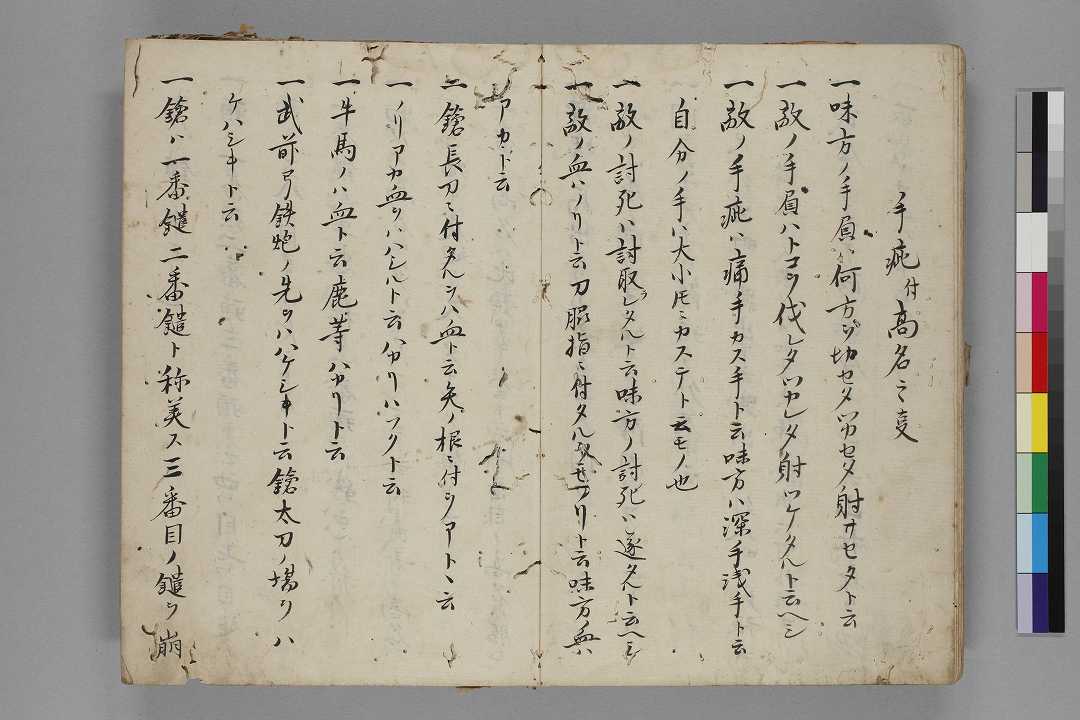 手疵付高名之事
一味方ノ手負ハ何方ヲ切セタツカセタ射サセタト云
一敵ノ手負ハトコヲ伐レタツカレタ射ツケタルト云ヘシ
一敵ノ手疵ハ痛手カス手ト云味方ハ深手浅手ト云
自分ノ手ハ大小トモニカステト云モノ也
一敵ノ討死ハ討取レタルト云味方ノ討死ハ遂タルト云ヘシ
一敵ノ血ハノリト云刀脇指ニ付タルヲモノリト云味方血ハ
アカト云
一鎗長刀ニ付タルヲハ血ト云矢ノ根ニ付ヲアトヽ云
一ノリアカ血ヲハハシルト云ハカリハツクト云
一牛馬ノハ血ト云鹿等ハカリト云
一武前弓鉄炮ノ先ヲハハケシキト云鎗太刀ノ場ヲハ
ケハシキト云
一鎗ハ一番鑓二番鑓ト称美ス三番目ノ鑓ヲ崩